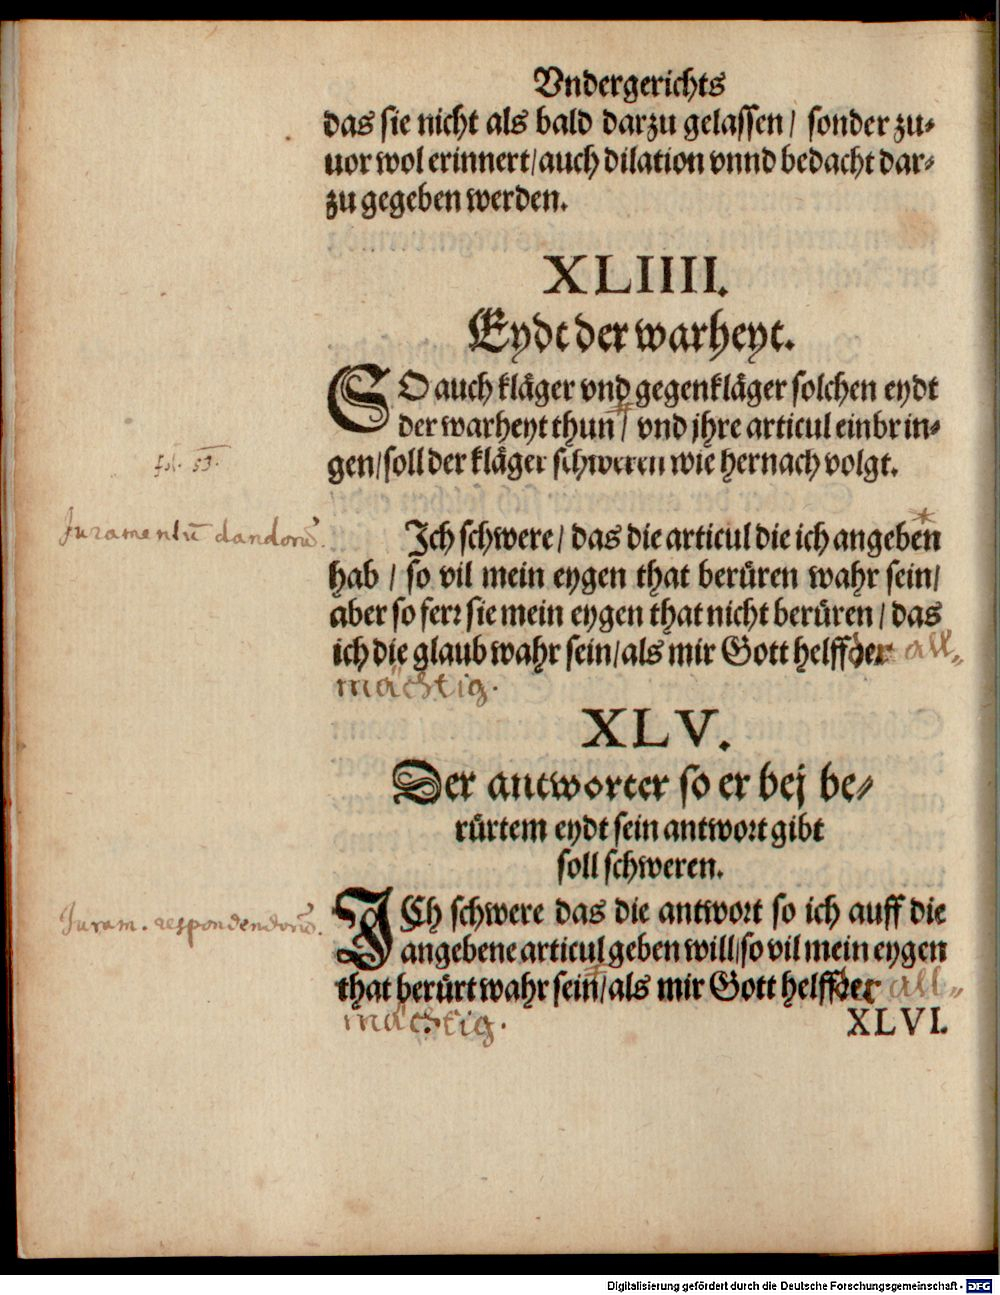 Vndergerichts
das sie nicht als bald darzu gelassen / sonder zu⸗
uor wol erinnert / auch dilation vnnd bedacht dar⸗
zu gegeben werden.
XLIIII.
Eydt der warheyt.
SO auch kläger vnd gegenkläger solchen eydt
der warheyt thun / vnd jhre articul einbrin⸗
gen / soll der kläger schweren wie hernach volgt.
fol. 53.
Juramentū dandorū.
Ich schwere / das die articul die ich angeben
hab / so vil mein eygen that berüren wahr sein /
aber so ferr sie mein eygen that nicht berüren / das
ich die glaub wahr sein / als mir Gott helff der all⸗
mächtig.
XLV.
Der antworter so er bej be⸗
rürtem eydt sein antwort gibt
soll schweren.
Juram. respondendorū.
ICh schwere das die antwort so ich auff die
angebene articul geben will / so vil mein eygen
that berürt wahr sein / als mir Gott helff der all⸗
mächtig.
XLVI.
Digitalisierung gefördert durch die Deutsche Forschungsgemeinschaft - DFG